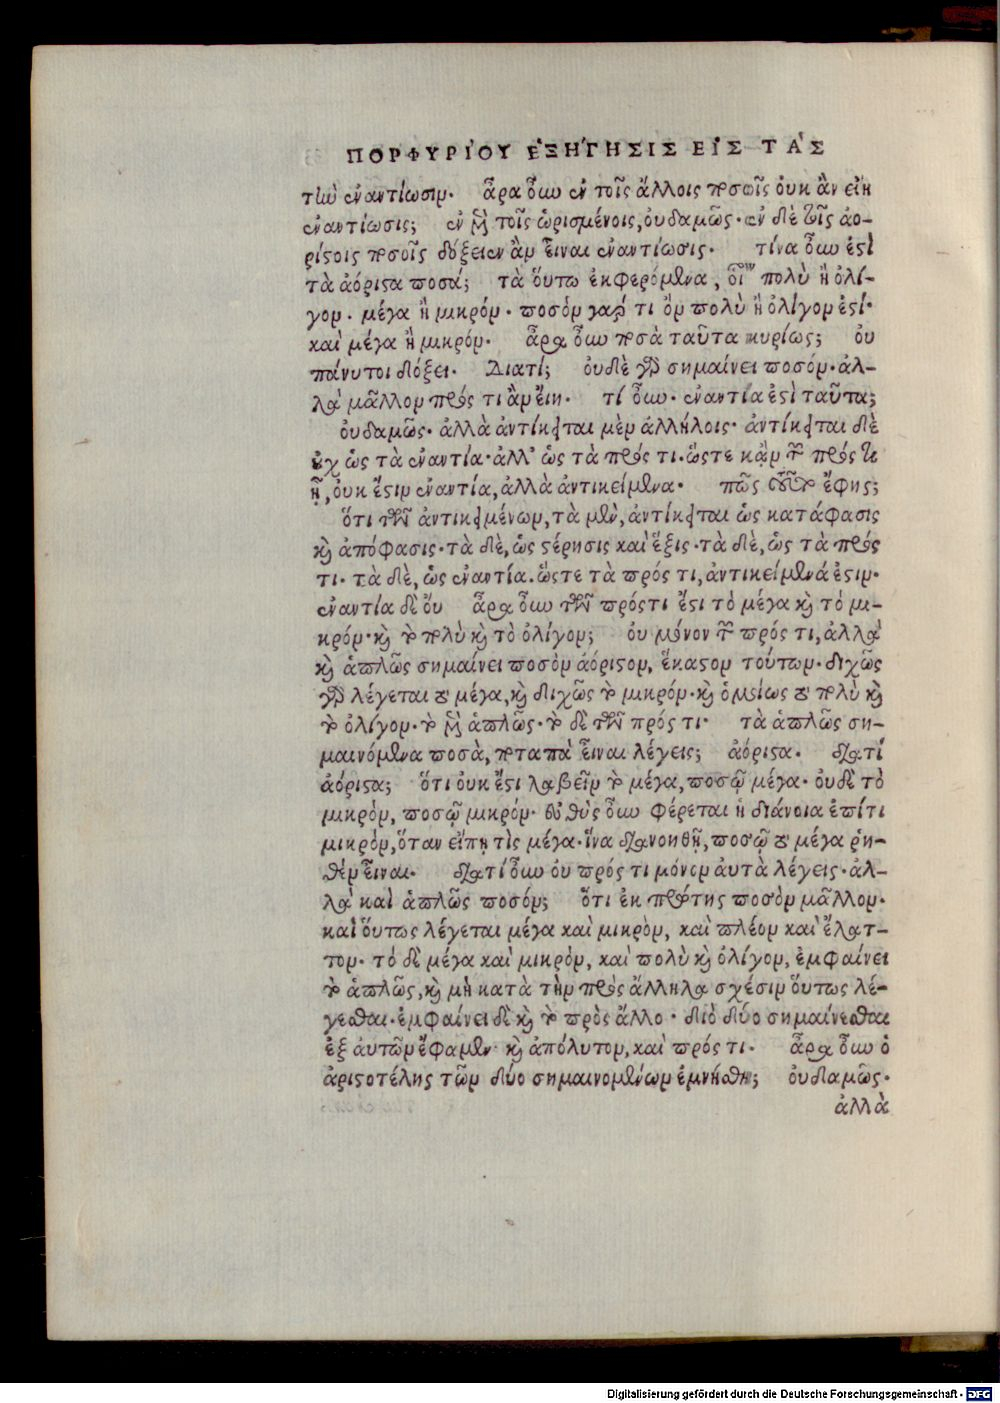 ΠΟΡΦΥΡΙΟΥ ΕΞΗΓΗΣΙΣ ΕΙΣ ΤΑΣ
τὴν ἐναντίωσιν. ἆρα οὖν ἐν τοῖς ἄλλοις ποσοῖς οὐκ ἂν εἴη
ἐναντίωσις; ἐν μὲν τοῖς ὡρισμένοις, οὐδαμῶς. ἐν δὲ τοῖς ἀο-
ρίστοις ποσοῖς δόξειεν ἂν εἶναι ἐναντίωσις. τίνα οὖν ἐστὶ
τὰ ἀόριστα ποσά; τὰ οὕτω ἐκφερόμενα, οἷον πολὺ ἢ ὀλί-
γον. μέγα ἢ μικρόν. ποσὸν γάρ τι ὂν πολὺ ἢ ὀλίγον ἐστί.
καὶ μέγα ἢ μικρόν. ἆρα οὖν ποσὰ ταῦτα κυρίως; οὐ
πάνυτοι δόξει. Διατί; οὐδὲ γὰρ σημαίνει ποσόν. ἀλ-
λὰ μᾶλλον πρός τι ἂν εἴη. τί οὖν. ἐναντία ἐστὶ ταῦτα;
οὐδαμῶς. ἀλλὰ ἀντίκειται μὲν ἀλλήλοις. ἀντίκειται δὲ
οὐχ ὡς τὰ ἐναντία. ἀλλ' ὡς τὰ πρός τι. ὥστε κἂν τῶν πρός τι
ᾖ, οὐκ ἔστιν ἐναντία, ἀλλὰ ἀντικείμενα. πῶς τοῦτο ἔφης;
ὅτι τῶν ἀντικειμένων, τὰ μὲν, ἀντίκειται ὡς κατάφασις
καὶ ἀπόφασις. τὰ δὲ, ὡς στέρησις καὶ ἕξις. τὰ δὲ, ὡς τὰ πρός
τι. τὰ δὲ, ὡς ἐναντία. ὥστε τὰ πρός τι, ἀντικείμενά ἐστιν.
ἐναντία δὲ οὔ ἆρα οὖν τῶν πρόςτι ἔστι τὸ μέγα καὶ τὸ μι-
κρόν. καὶ τὸ πολὺ καὶ τὸ ὀλίγον; οὐ μόνον τῶν πρός τι, ἀλλὰ
καὶ ἁπλῶς σημαίνει ποσὸν ἀόριστον, ἕκαστον τούτων. διχῶς
γὰρ λέγεται τὸ μέγα, καὶ διχῶς τὸ μικρόν. καὶ ὁμοίως τὸ πολὺ καὶ
τὸ ὀλίγον. τὸ μὲν ἁπλῶς. τὸ δὲ τῶν πρός τι. τὰ ἁπλῶς ση-
μαινόμενα ποσὰ, ποταπὰ εἶναι λέγεις; ἀόριστα. διατί
ἀόριστα; ὅτι οὐκ ἔστι λαβεῖν τὸ μέγα, ποσῷ μέγα. οὐδὲ τὸ
μικρὸν, ποσῷ μικρόν. εὐθὺς οὖν φέρεται ἡ διάνοια ἐπίτι
μικρὸν, ὅταν εἴπῃ τὶς μέγα. ἵνα διανοηθῇ, ποσῷ τὸ μέγα ῥη-
θὲν εἶναι. διατί οὖν οὐ πρός τι μόνον αὐτὰ λέγεις. ἀλ-
λὰ καὶ ἁπλῶς ποσόν; ὅτι ἐκ πρώτης ποσὸν μᾶλλον.
καὶ οὕτως λέγεται μέγα καὶ μικρὸν, καὶ πλέον καὶ ἔλατ-
τον. τὸ δὲ μέγα καὶ μικρὸν, καὶ πολὺ καὶ ὀλίγον, ἐμφαίνει
τὸ ἁπλῶς, καὶ μὴ κατὰ τὴν πρὸς ἄλληλα σχέσιν οὕτως λέ-
γεσθαι. ἐμφαίνει δὲ καὶ τὸ πρὸς ἄλλο. διὸ δύο σημαίνεσθαι
ἐξ αὐτῶν ἔφαμεν. καὶ ἀπόλυτον, καὶ πρός τι. ἆρα οὖν ὁ
ἀριστοτέλης τῶν δύο σημαινομένων ἐμνήσθη; οὐδαμῶς.
ἀλλὰ
Digitalisierung gefördert durch die Deutsche Forschungsgemeinschaft - DFG